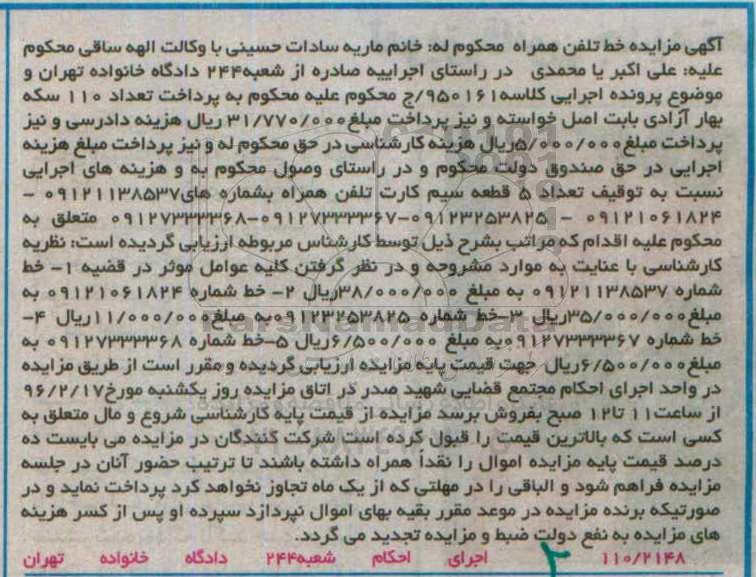 آگهی مزایده خط تلفن همراه محکوم له: خانم ماریه سادات حسینی با وکالت الهه ساقی محکوم
علیه: علی اکبر یا محمدی در راستای اجراییه صادره از شعبه۲۴۴ دادگاه خانواده تهران و
موضوع پرونده اجرایی کلاسه۹۵۰۱۶۱/ج محکوم علیه محکوم به پرداخت تعداد ۱۱۰ سکه
بهار آزادی بابت اصل خواسته و نیز پرداخت مبلغ۳۱/۷۷۰/۰۰۰ ریال هزینه دادرسی و نیز
پرداخت مبلغ۵/۰۰۰/۰۰۰ریال هزینه کارشناسی در حق محکوم له و نیز پرداخت مبلغ هزینه
اجرایی در حق صندوق دولت محکوم و در راستای وصول محکوم به و هزینه های اجرایی
نسبت به توقیف تعداد ۵ قطعه سیم کارت تلفن همراه بشماره های۰۹۱۲۱۱۳۸۵۳۷ -
۰۹۱۲۱۰۶۱۸۲۴ - ۰۹۱۲۳۲۵۳۸۲۵-۰۹۱۲۷۳۳۳۳۶۷-۰۹۱۲۷۳۳۳۳۶۸ متعلق به
محکوم علیه اقدام که مراتب بشرح ذیل توسط کارشناس مربوطه ارزیابی گردیده است: نظریه
کارشناسی با عنایت به موارد مشروحه و در نظر گرفتن کلیه عوامل موثر در قضیه ۱- خط
شماره ۰۹۱۲۱۱۳۸۵۳۷ به مبلغ ۳۸/۰۰۰/۰۰۰ریال ۲- خط شماره ۰۹۱۲۱۰۶۱۸۲۴ به
مبلغ۳۵/۰۰۰/۰۰۰ریال ۳-خط شماره ۰۹۱۲۳۲۵۳۸۲۵به مبلغ۱۱/۰۰۰/۰۰۰ریال ۴-
خط شماره ۰۹۱۲۷۳۳۳۳۶۷به مبلغ ۶/۵۰۰/۰۰۰ریال ۵-خط شماره ۰۹۱۲۷۳۳۳۳۶۸ به
مبلغ۶/۵۰۰/۰۰۰ریال جهت قیمت پایه مزایده ارزیابی گردیده و مقرر است از طریق مزایده
در واحد اجرای احکام مجتمع قضایی شهید صدر در اتاق مزایده روز یکشنبه مورخ۹۶/۲/۱۷
از ساعت۱۱ تا۱۲ صبح بفروش برسد مزایده از قیمت پایه کارشناسی شروع و مال متعلق به
کسی است که بالاترین قیمت را قبول کرده است شرکت کنندگان در مزایده می بایست ده
درصد قیمت پایه مزایده اموال را نقداً همراه داشته باشند تا ترتیب حضور آنان در جلسه
مزایده فراهم شود و الباقی را در مهلتی که از یک ماه تجاوز نخواهد کرد پرداخت نماید و در
صورتیکه برنده مزایده در موعد مقرر بقیه بهای اموال نپردازد سپرده او پس از کسر هزینه
های مزایده به نفع دولت ضبط و مزایده تجدید می گردد.
۱۱۰/۲۱۴۸ اجرای احکام شعبه۲۴۴ دادگاه خانواده تهران
۲
ParsNamadData